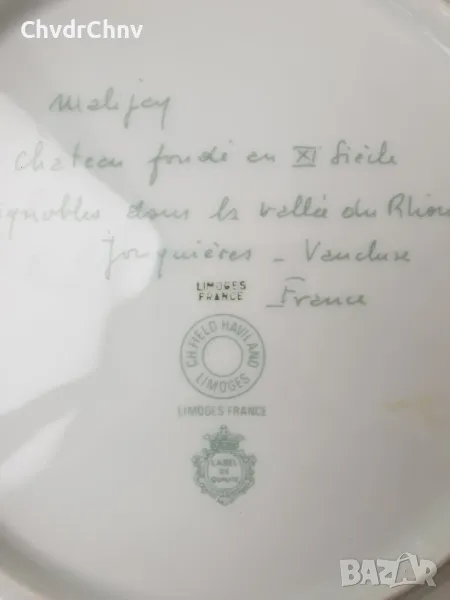 ChvdrChnv
Malijay
Chateau fondé en XI Siècle
ignobles dans la vallée du Rhon
Jonquières - Vaucluse
France
LIMOGES
FRANCE
CH FIELD HAVILAND
LIMOGES
LIMOGES FRANCE
LABEL
DE
QUALITE
BAZAR